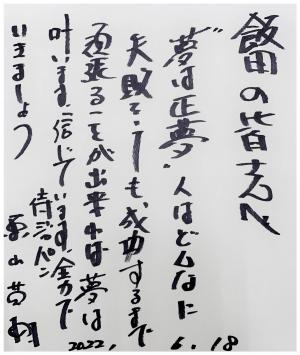 飯田の皆さんへ
"夢は正夢" 人はどんなに
失敗をしても、成功するまで
頑張ることが出来れば夢は
叶います。信じています。全力で
いきましょう
侍ジャパン
栗山英樹
2022, 6.18